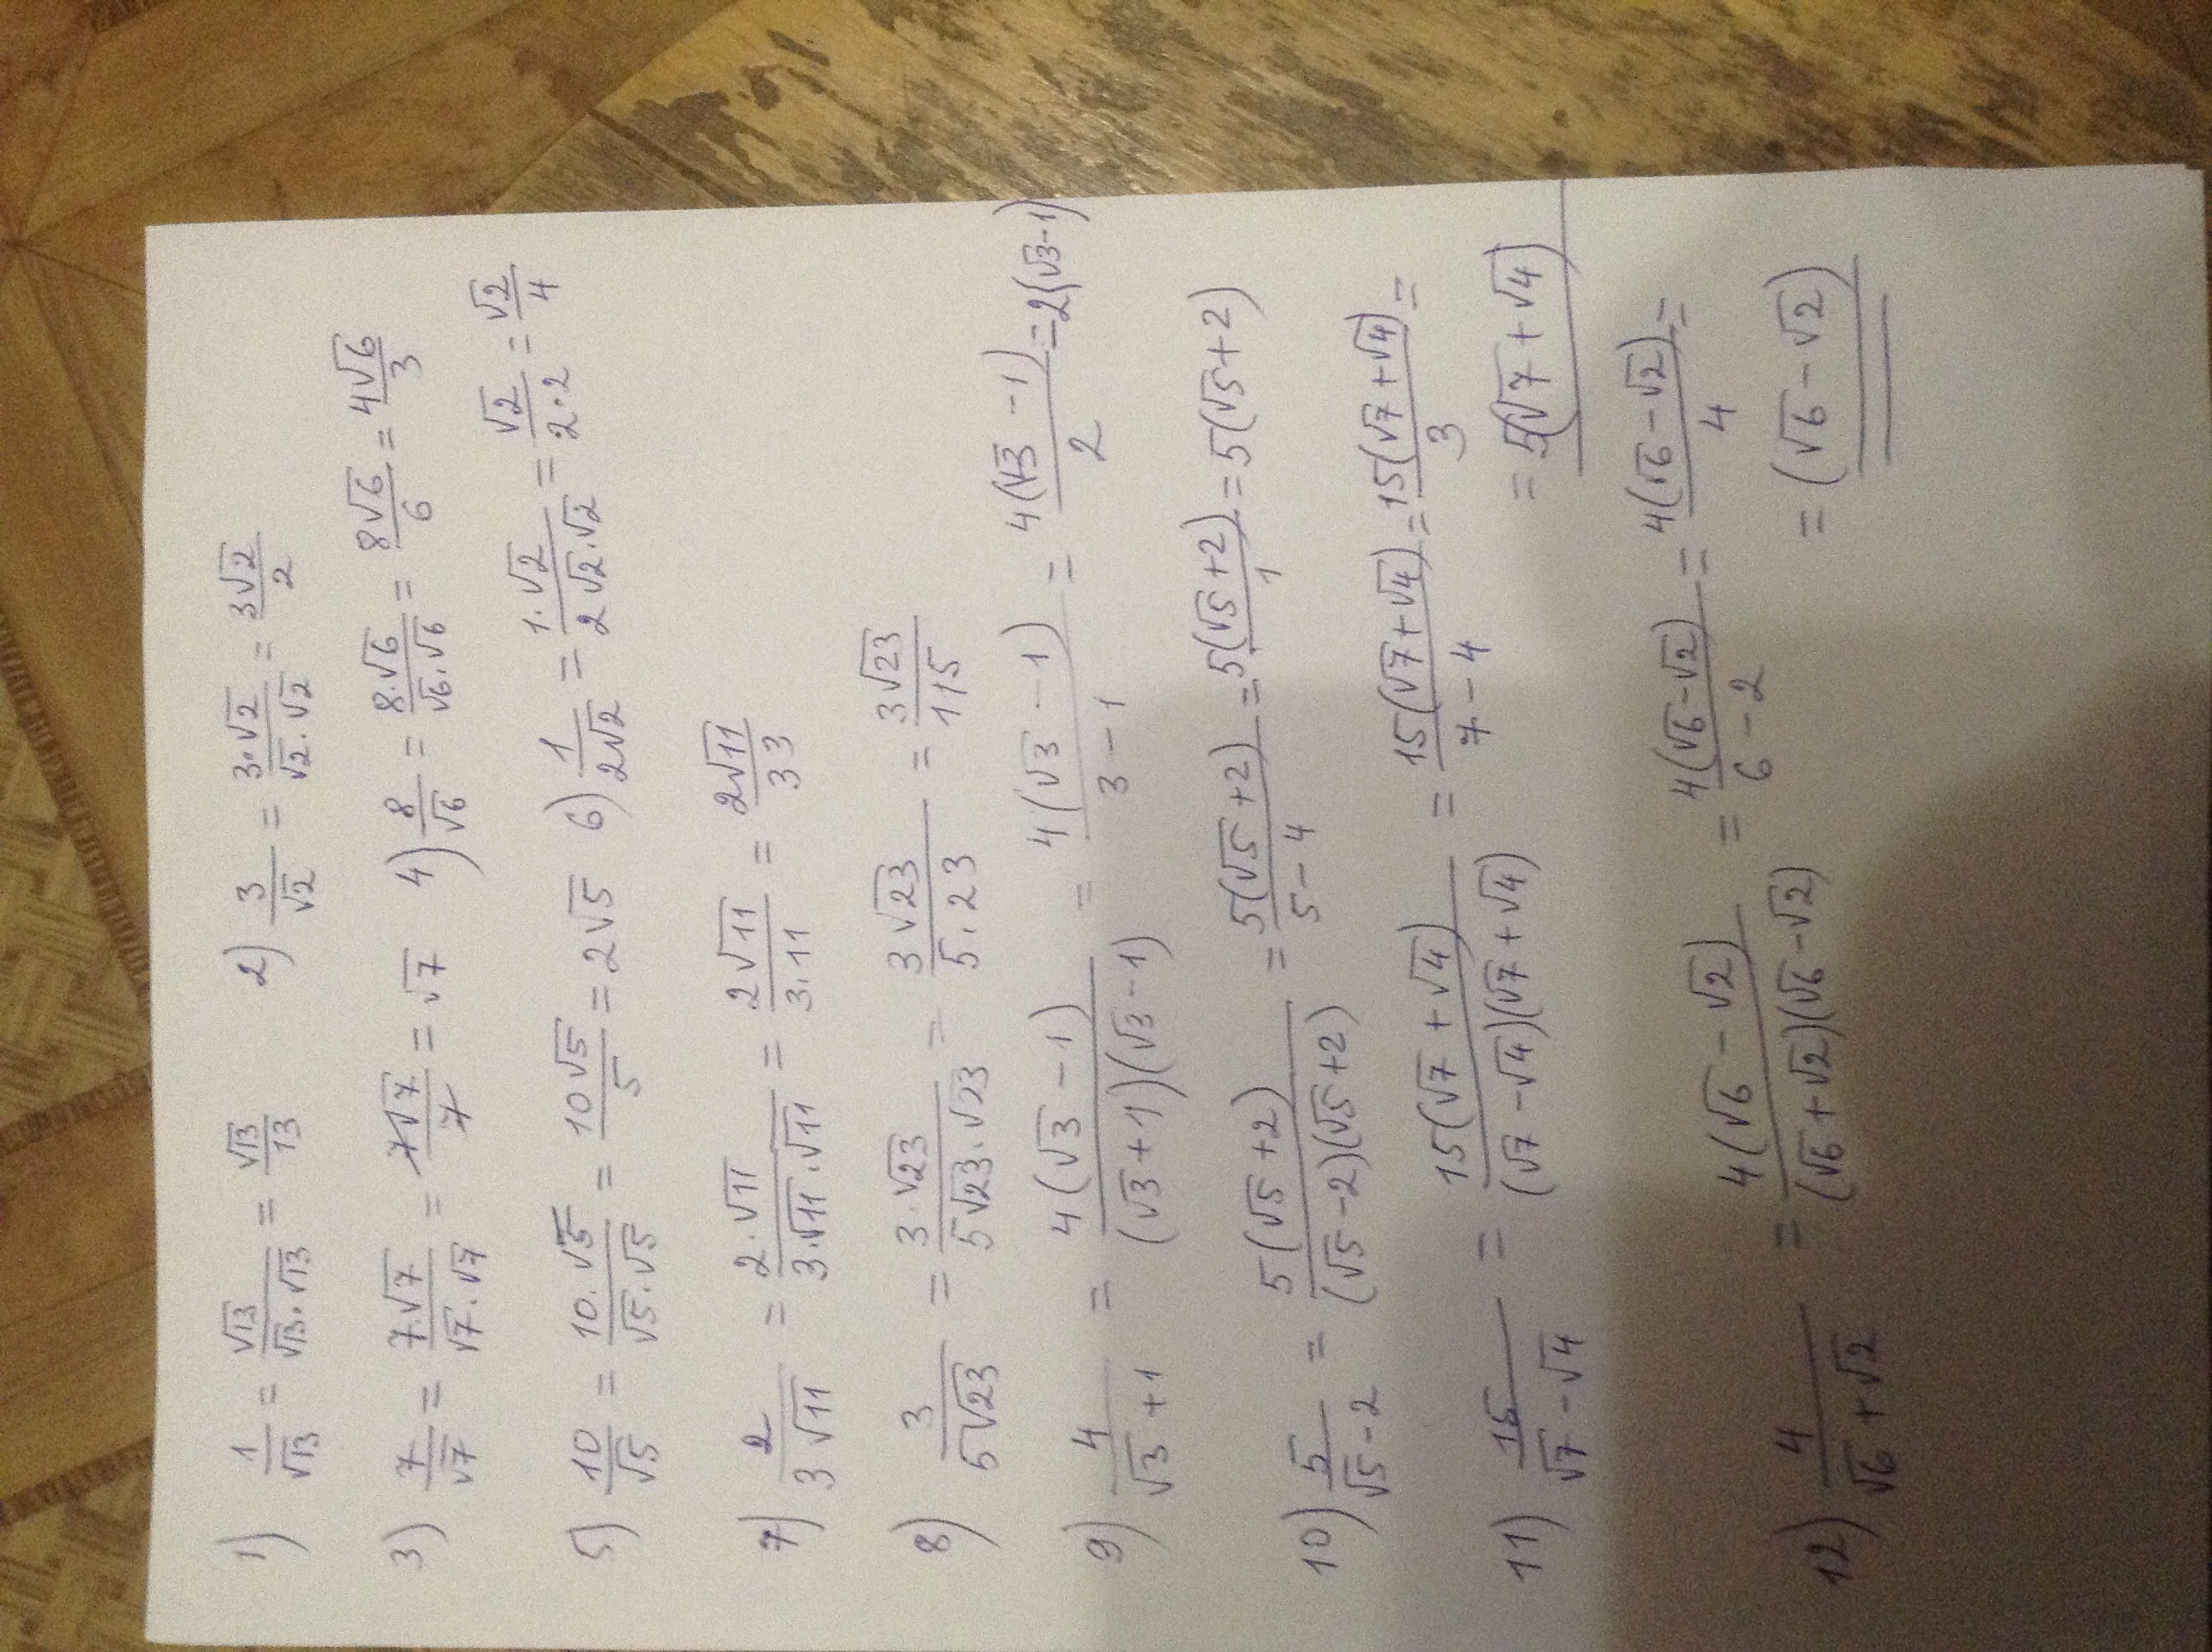 1) 1/√13 = √13/(√13·√13) = √13/13 2) 3/√2 = 3·√2/(√2·√2) = 3√2/2
3) 7/√7 = 7·√7/(√7·√7) = 7√7/7 = √7 4) 8/√6 = 8·√6/(√6·√6) = 8√6/6 = 4√6/3
5) 10/√5 = 10·√5/(√5·√5) = 10√5/5 = 2√5 6) 1/(2√2) = 1·√2/(2√2·√2) = √2/(2·2) = √2/4
7) 2/(3√11) = 2·√11/(3·√11·√11) = 2√11/(3·11) = 2√11/33
8) 3/(5√23) = 3·√23/(5√23·√23) = 3√23/(5·23) = 3√23/115
9) 4/(√3+1) = 4(√3-1)/((√3+1)(√3-1)) = 4(√3-1)/(3-1) = 4(√3-1)/2 = 2(√3-1)
10) 5/(√5-2) = 5(√5+2)/((√5-2)(√5+2)) = 5(√5+2)/(5-4) = 5(√5+2)/1 = 5(√5+2)
11) 15/(√7-√4) = 15(√7+√4)/((√7-√4)(√7+√4)) = 15(√7+√4)/(7-4) = 15(√7+√4)/3 =
= 5(√7+√4)
12) 4/(√6+√2) = 4(√6-√2)/((√6+√2)(√6-√2)) = 4(√6-√2)/(6-2) = 4(√6-√2)/4 =
= (√6-√2)